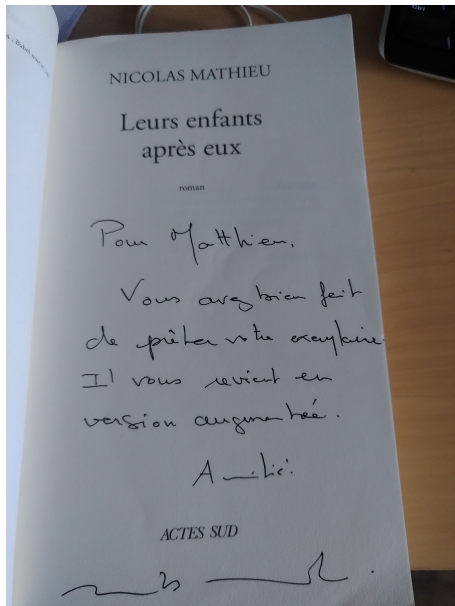 NICOLAS MATHIEU
Leurs enfants
après eux
roman
Pour Matthieu,
Vous avez bien fait
de prêter votre exemplaire.
Il vous revient en
version augmentée.
Amitié.
ACTES SUD